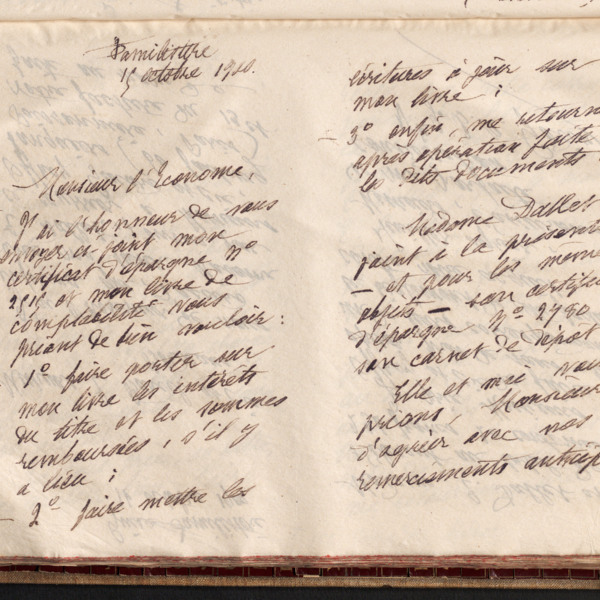 Familistère
15 octobre 1920.
Monsieur l'Econome,
J'ai l'honneur de vous
envoyer ci-joint mon
certificat d'épargne nº
2515 et mon livre de
comptabilité vous
priant de bien vouloir :
1º faire porter sur
mon livre les intérêts
du titre et les sommes
remboursées, s'il y
a lieu ;
— 2º faire mettre les
écritures à jour sur
mon livre ;
— 3º enfin, me retourn
après opération faite
les dits documents
Madame Dallet
joint à la présente
— et pour les même
objets — son certific
d'épargne Nº 2780
son carnet de dépôt
Elle et moi vous
prions, Monsieur
d'agréer avec nos
remerciements anticip